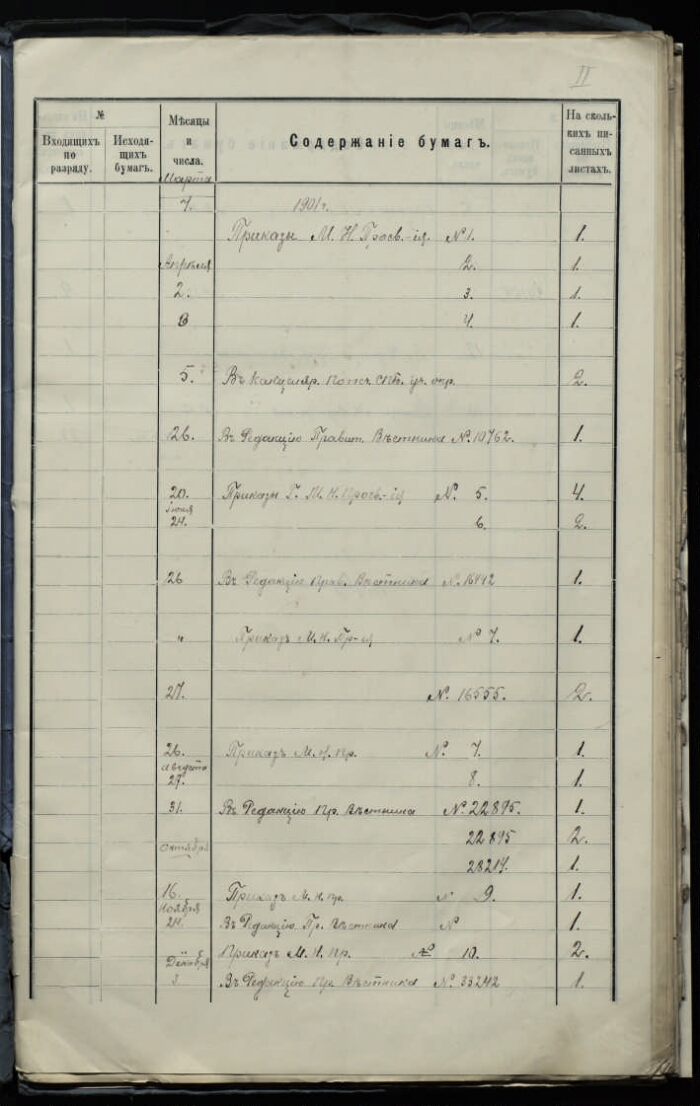 II
№
Входящихъ по разряду.
Исходящихъ бумагъ.
Мѣсяцы и числа.
Содержаніе бумагъ.
На сколькихъ писанныхъ листахъ.
Марта
7. 1901 г.
Приказы М. Н. Просв.-ія. № 1. 1.
Апрѣля 2. 1.
2. 3. 1.
4. 1.
5. Въ Канцеляр. Попеч. СПб. уч. окр. 2.
26. Въ Редакцію Правит. Вѣстника № 10762. 1.
20. Приказы Г. М. Н. Просв.-ія № 5. 4.
Іюня
24. 6. 2.
26 Въ Редакцію Прав. Вѣстника № 16442 1.
" Приказъ М. Н. Пр-ія № 7. 1.
27. № 16555. 2.
26. Приказъ М. Н. Пр. № 7. 1.
Августа
27. 8. 1.
31. Въ Редакцію Пр. Вѣстника № 22895. 1.
22895 2.
Октября
28217. 1.
16. Приказъ М. Н. Пр. № 9. 1.
Ноября
24. Въ Редакцію Пр. Вѣстника № 1.
Приказъ М. Н. Пр. № 10. 2.
Декабря
3 Въ Редакцію Пр. Вѣстника № 33242 1.